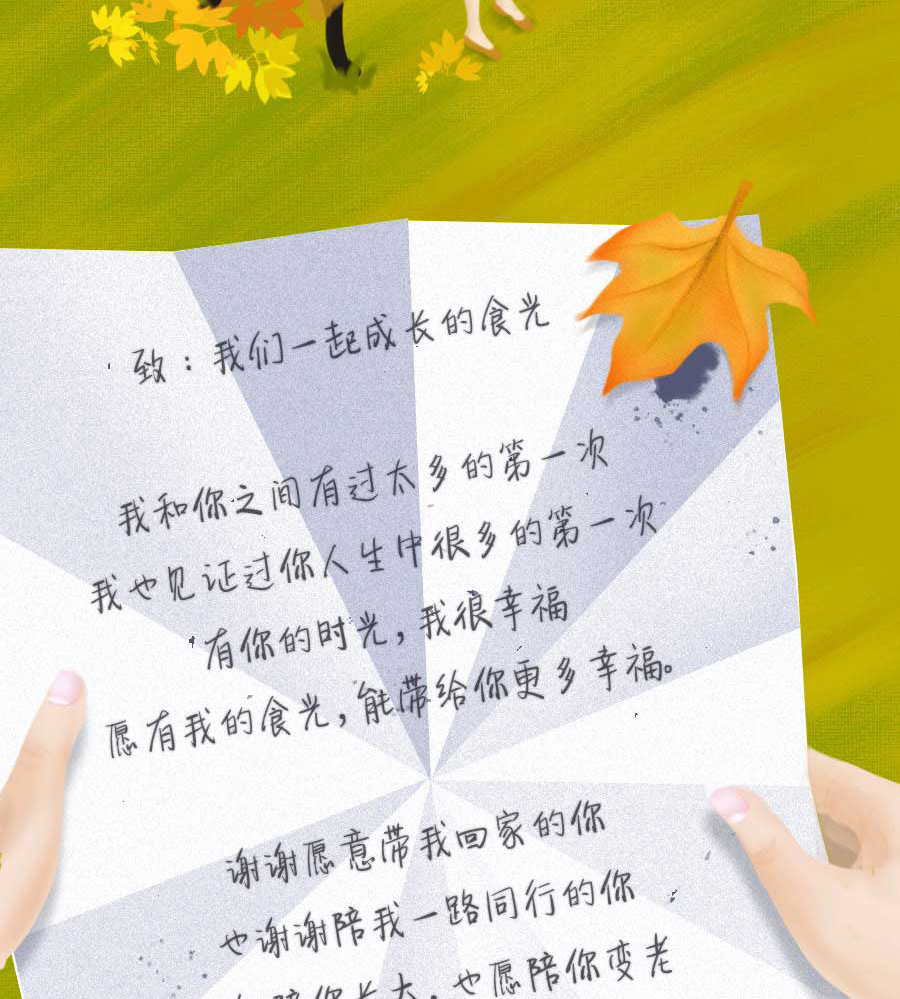 致：我们一起成长的食光
我和你之间有过太多的第一次
我也见证过你人生中很多的第一次
有你的时光，我很幸福
愿有我的食光，能带给你更多幸福。
谢谢愿意带我回家的你
也谢谢陪我一路同行的你
陪你长大，也愿陪你变老